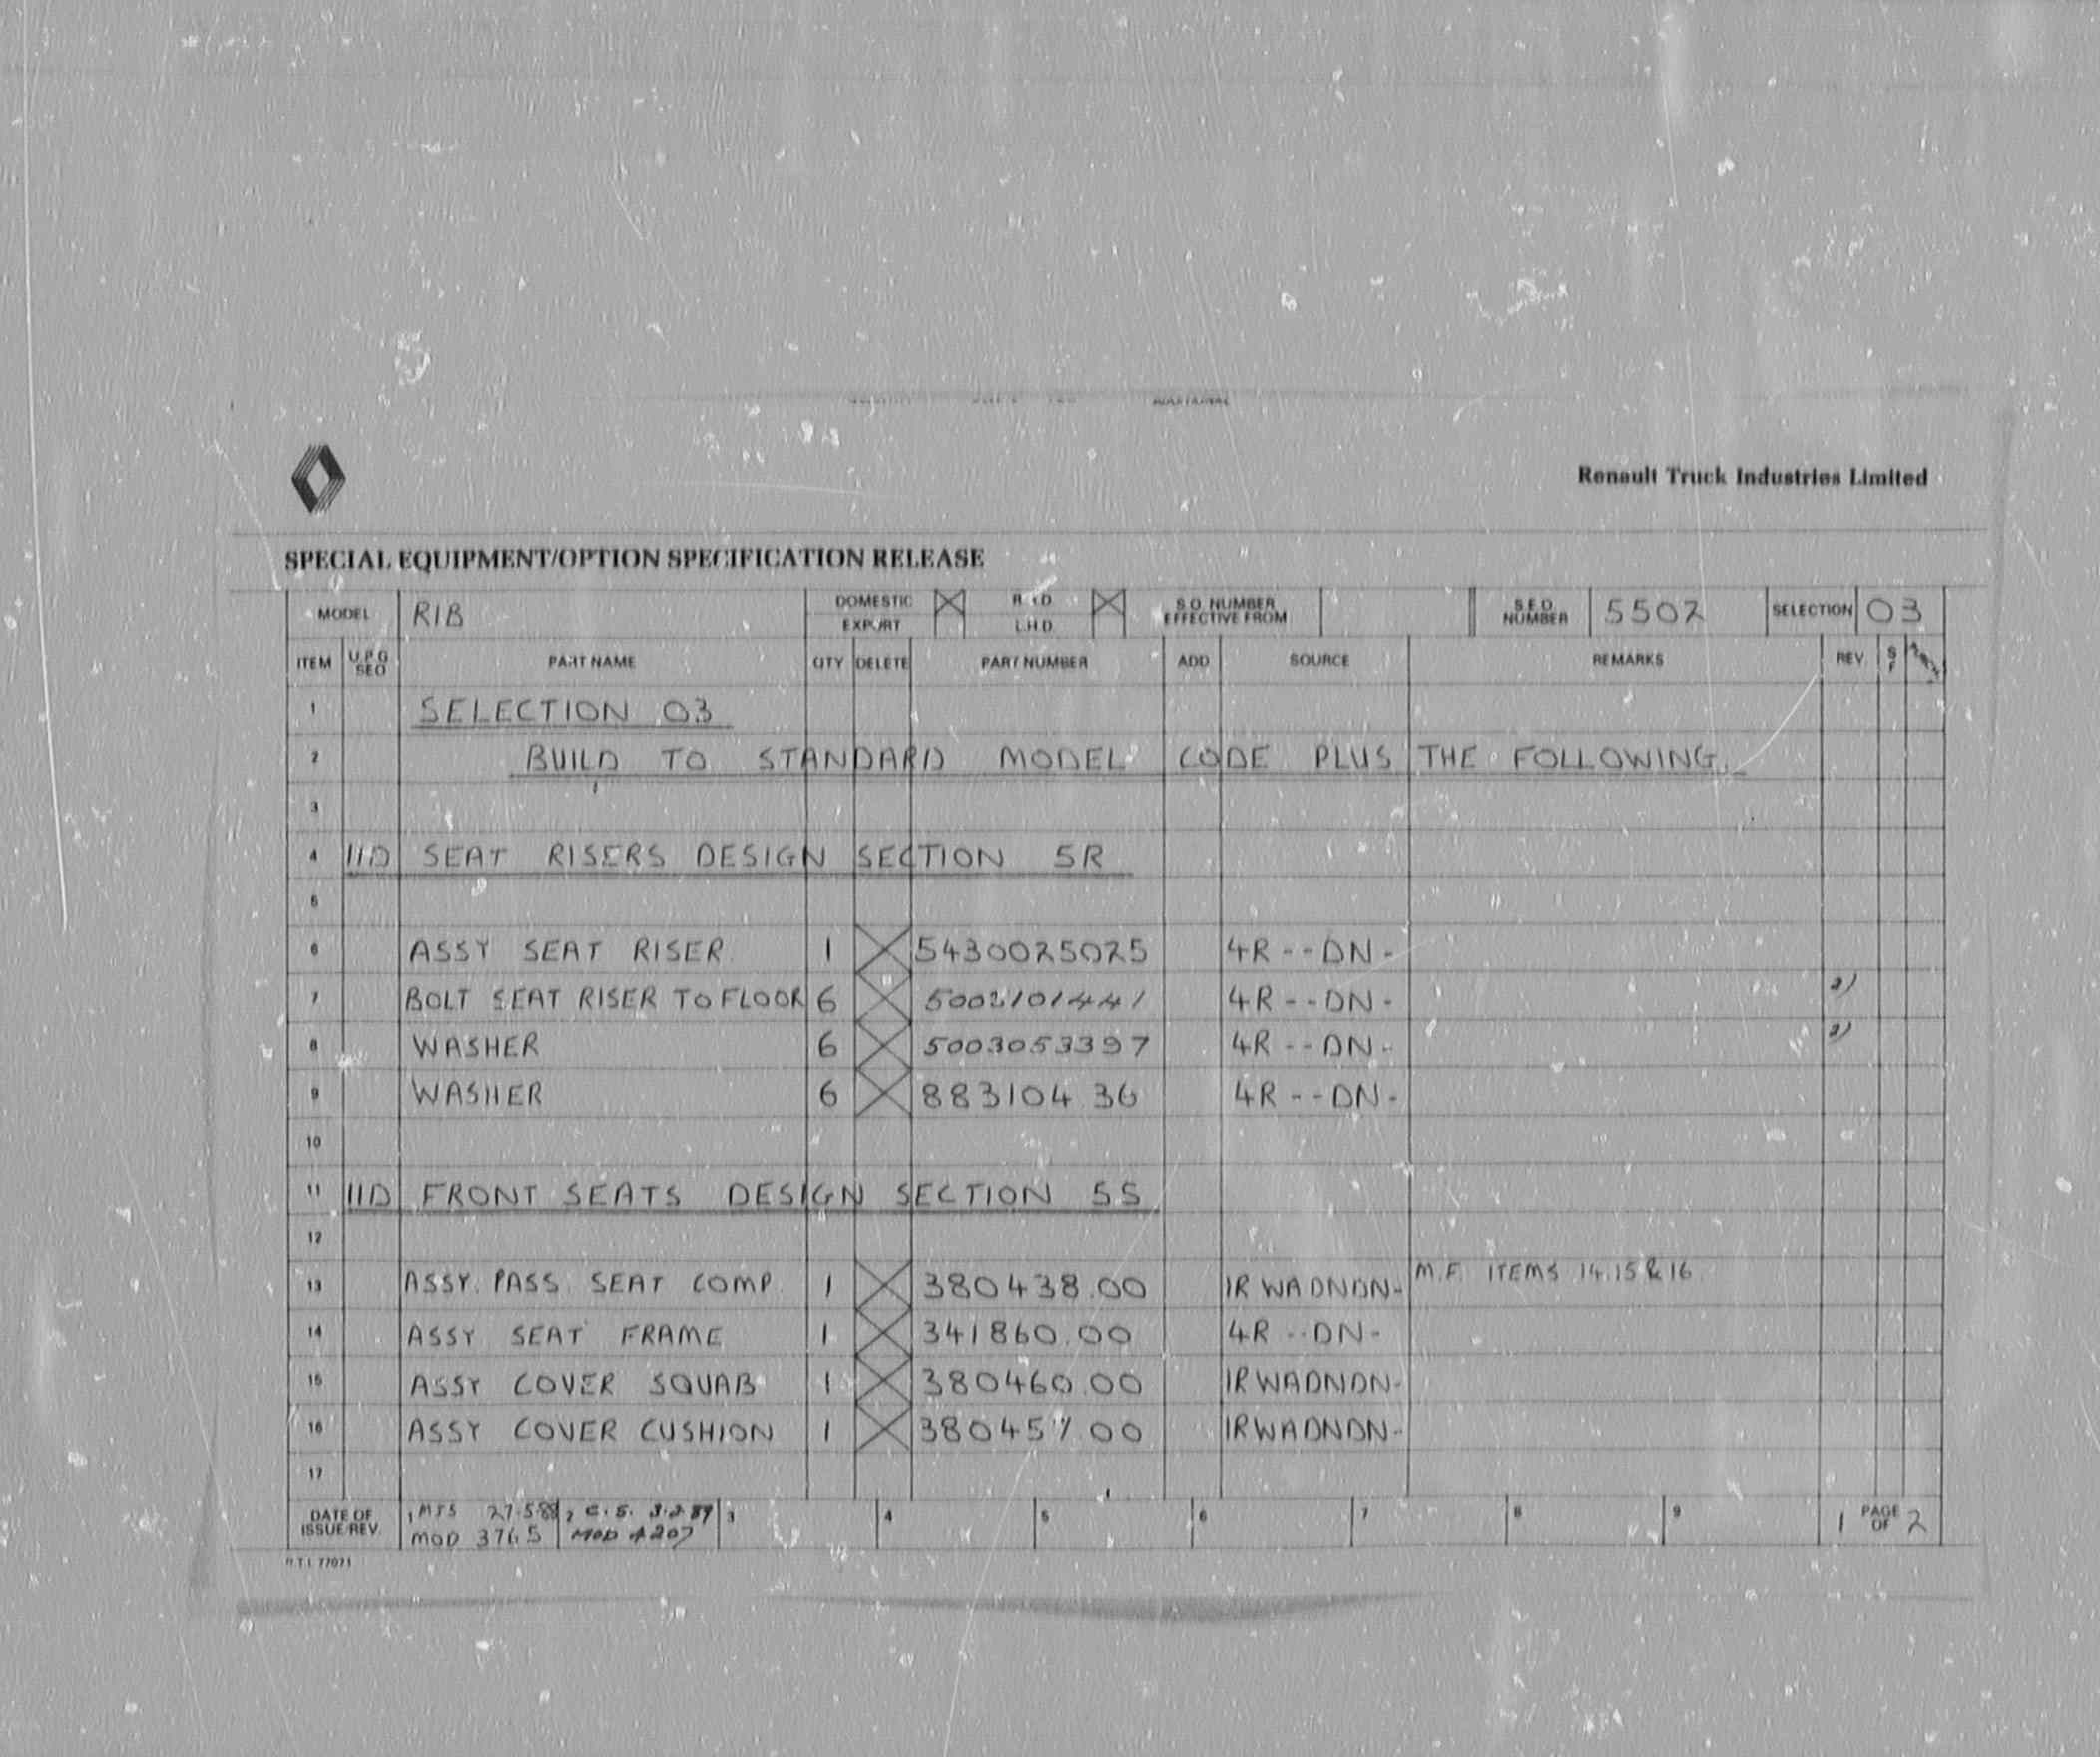 Renault Truck Industries Limited
SPECIAL EQUIPMENT/OPTION SPECIFICATION RELEASE
MODEL R1B DOMESTIC EXPORT R.H.D. L.H.D. S.O. NUMBER EFFECTIVE FROM S.E.O. NUMBER 5502 SELECTION 03
ITEM U.P.G. SEQ PART NAME QTY DELETE PART NUMBER ADD SOURCE REMARKS REV. S F
1 SELECTION 03
2 BUILD TO STANDARD MODEL CODE PLUS THE FOLLOWING.
3
4 11D SEAT RISERS DESIGN SECTION 5R
5
6 ASSY SEAT RISER. 1 5430025025 4R--DN-
7 BOLT SEAT RISER TO FLOOR 6 5002101441 4R--DN- 2)
8 WASHER 6 5003053397 4R--DN- 2)
9 WASHER 6 883104.36 4R--DN-
10
11 11D FRONT SEATS DESIGN SECTION 5S
12
13 ASSY. PASS. SEAT COMP. 1 380438.00 1RWADNDN- M.F. ITEMS 14.15 & 16
14 ASSY SEAT FRAME 1 341860.00 4R--DN-
15 ASSY COVER SQUAB 1 380460.00 1RWADNDN-
16 ASSY COVER CUSHION 1 380457.00 1RWADNDN-
17
DATE OF ISSUE/REV. 1 MJS 27.5.88 2 C.S. 3.2.89 3 4 5 6 7 8 9 1 PAGE OF 2
MOD 3765 MOD 4207
R.T.I. 77071